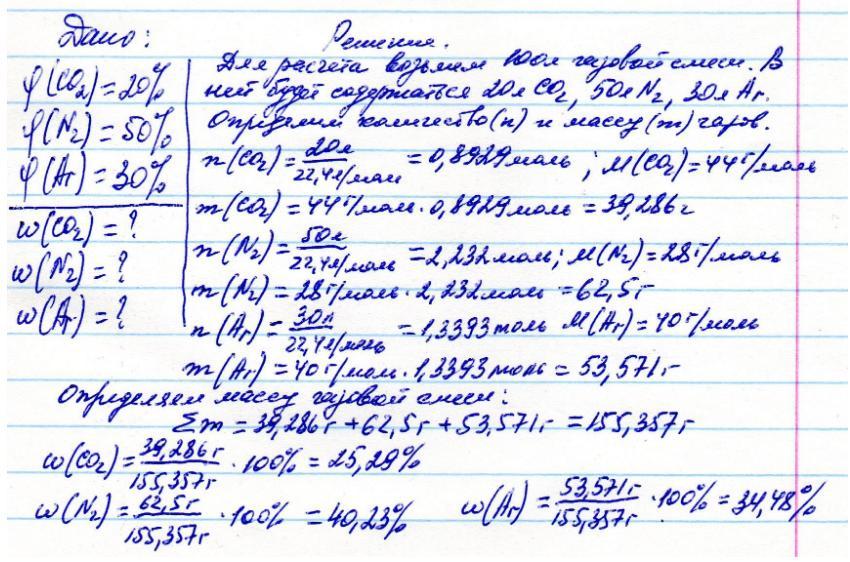 Дано:
φ(CO₂)=20%
φ(N₂)=50%
φ(Ar)=30%
ω(CO₂)=?
ω(N₂)=?
ω(Ar)=?
Решение.
Для расчета возьмем 100л газовой смеси. В
ней будет содержаться 20л CO₂, 50л N₂, 30л Ar.
Определим количество(n) и массу(m) газов.
n(CO₂)=20л/22,4л/моль=0,8929моль; M(CO₂)=44г/моль
m(CO₂)=44г/моль·0,8929моль=39,286г
n(N₂)=50л/22,4л/моль=2,232моль; M(N₂)=28г/моль
m(N₂)=28г/моль·2,232моль=62,5г
n(Ar)=30л/22,4л/моль=1,3393моль M(Ar)=40г/моль
m(Ar)=40г/моль·1,3393моль=53,571г
Определяем массу газовой смеси:
Σm=39,286г+62,5г+53,571г=155,357г
ω(CO₂)=39,286г/155,357г·100%=25,29%
ω(N₂)=62,5г/155,357г·100%=40,23%
ω(Ar)=53,571г/155,357г·100%=34,48%